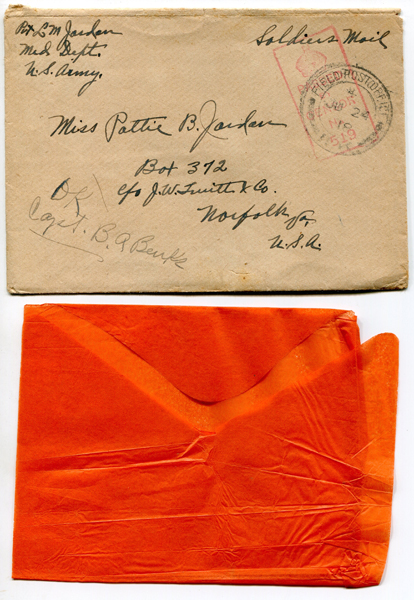 Pvt L M Jordan
Med. Dept.
U.S. Army.
Soldiers Mail
FIELD POST OFFICE
Miss Pattie B. Jordan
Box 372
c/o J. W. & Co.
Norfolk, Va,
U.S.A.
OK
Capt. B. A.